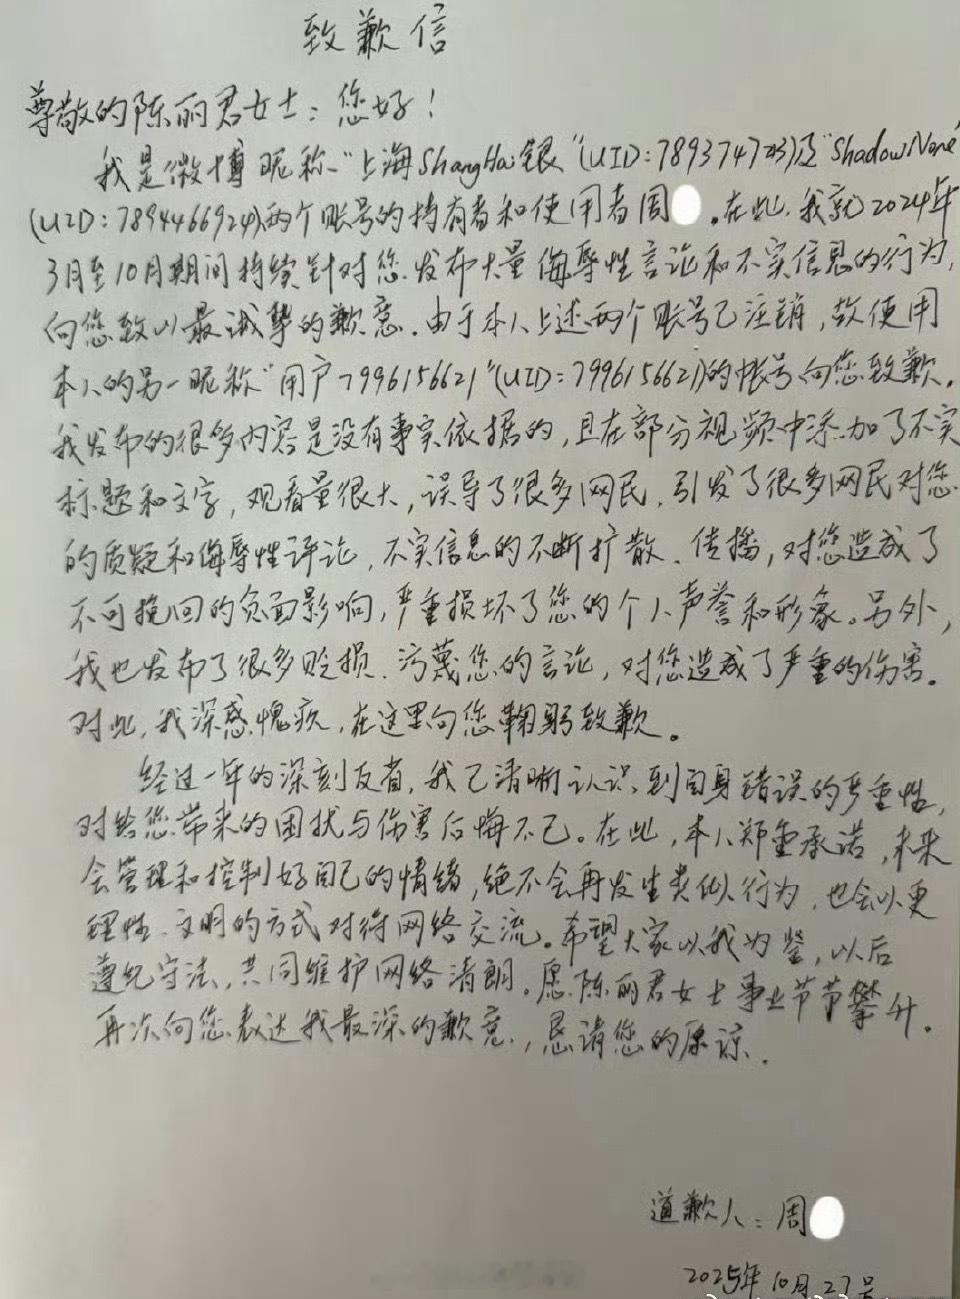 致歉信
尊敬的陈丽君女士：您好！
我是微博昵称"上海ShangHai银"(UID:7893747233)及"ShadowNone"
(UID:7894466924)两个账号的持有者和使用者周 。在此，我就2024年
3月至10月期间持续针对您发布大量侮辱性言论和不实信息的行为，
向您致以最诚挚的歉意。由于本人上述两个账号已注销，故使用
本人的另一昵称"用户7996156621"(UID:7996156621)的帐号向您致歉。
我发布的很多内容是没有事实依据的，且在部分视频中添加了不实
标题和文字，观看量很大，误导了很多网民，引发了很多网民对您
的质疑和侮辱性评论，不实信息的不断扩散、传播，对您造成了
不可挽回的负面影响，严重损坏了您的个人声誉和形象。另外，
我也发布了很多贬损、污蔑您的言论，对您造成了严重的伤害。
对此，我深感愧疚，在这里向您鞠躬致歉。
经过一年的深刻反省，我已清晰认识到自身错误的严重性，
对给您带来的困扰与伤害后悔不已。在此，本人郑重承诺，未来
会管理和控制好自己的情绪，绝不会再发生类似行为，也会以更
理性、文明的方式对待网络交流。希望大家以我为鉴，以后
遵纪守法，共同维护网络清朗。愿陈丽君女士事业节节攀升。
再次向您表达我最深的歉意，恳请您的原谅。
道歉人：周
2025年10月27号